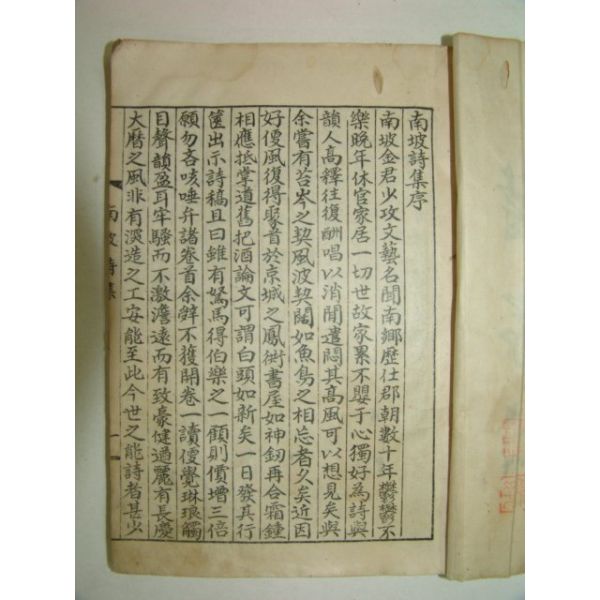 南坡詩集序
南坡金君少攻文藝名聞南鄉歷仕郡朝數十年鬱鬱不
樂晚年休官家居一切世故家累不嬰于心獨好為詩與
韻人高釋往復酬唱以消閒遣悶其高風可以想見矣與
余嘗有苔岑之契風波契闊如魚鳥之相忘者久矣近因
好便風復得聚首於京城之鳳術書屋如神釼再合霜鍾
相應抵掌道舊把酒論文可謂白頭如新矣一日發其行
篋出示詩稿且曰雖有駑馬得伯樂之一顧則價增三倍
願勿吝咳唾弁諸卷首余辭不獲開卷一讀便覺琳琅觸
目聲韻盈耳牢騷而不激澹遠而有致豪健遒麗有長慶
大曆之風非有深造之工安能至此今世之能詩者甚少
南坡詩集
一